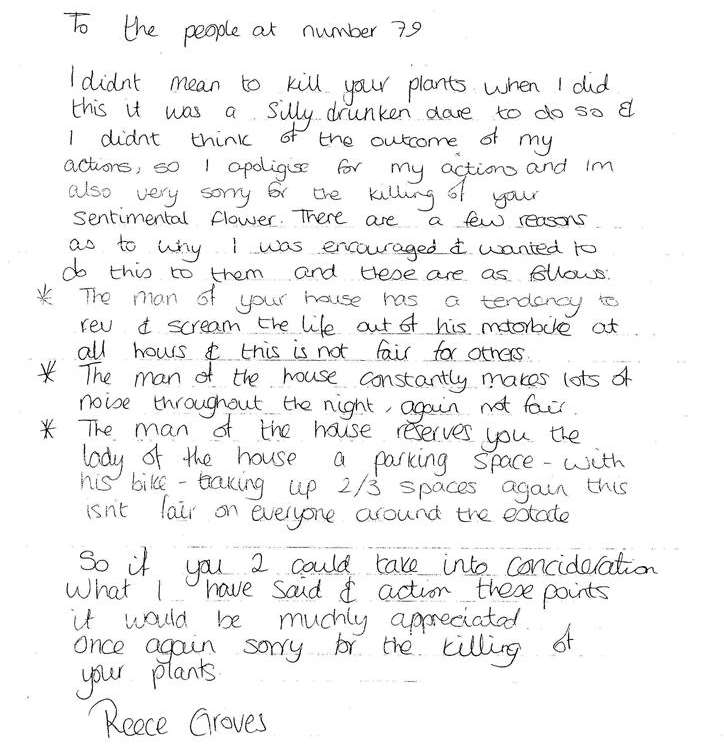 To the people at number 79
I didnt mean to kill your plants when I did
this it was a silly drunken dare to do so &
I didnt think of the outcome of my
actions, so I apoligise for my actions and Im
also very sorry for the killing of your
Sentimental flower. There are a few reasons
as to why I was encouraged & wanted to
do this to them and these are as follows:
* The man of your house has a tendancy to
rev & scream the life out of his motorbike at
all hours & this is not fair for others.
* The man of the house constantly makes lots of
noise throughout the night, again not fair.
* The man of the house reserves you the
lady of the house a parking space - with
his bike - taking up 2/3 spaces again this
isnt fair on everyone around the estate
So if you 2 could take into concideration
what I have said & action these points
it would be muchly appreciated.
Once again sorry for the killing of
your plants.
Reece Groves